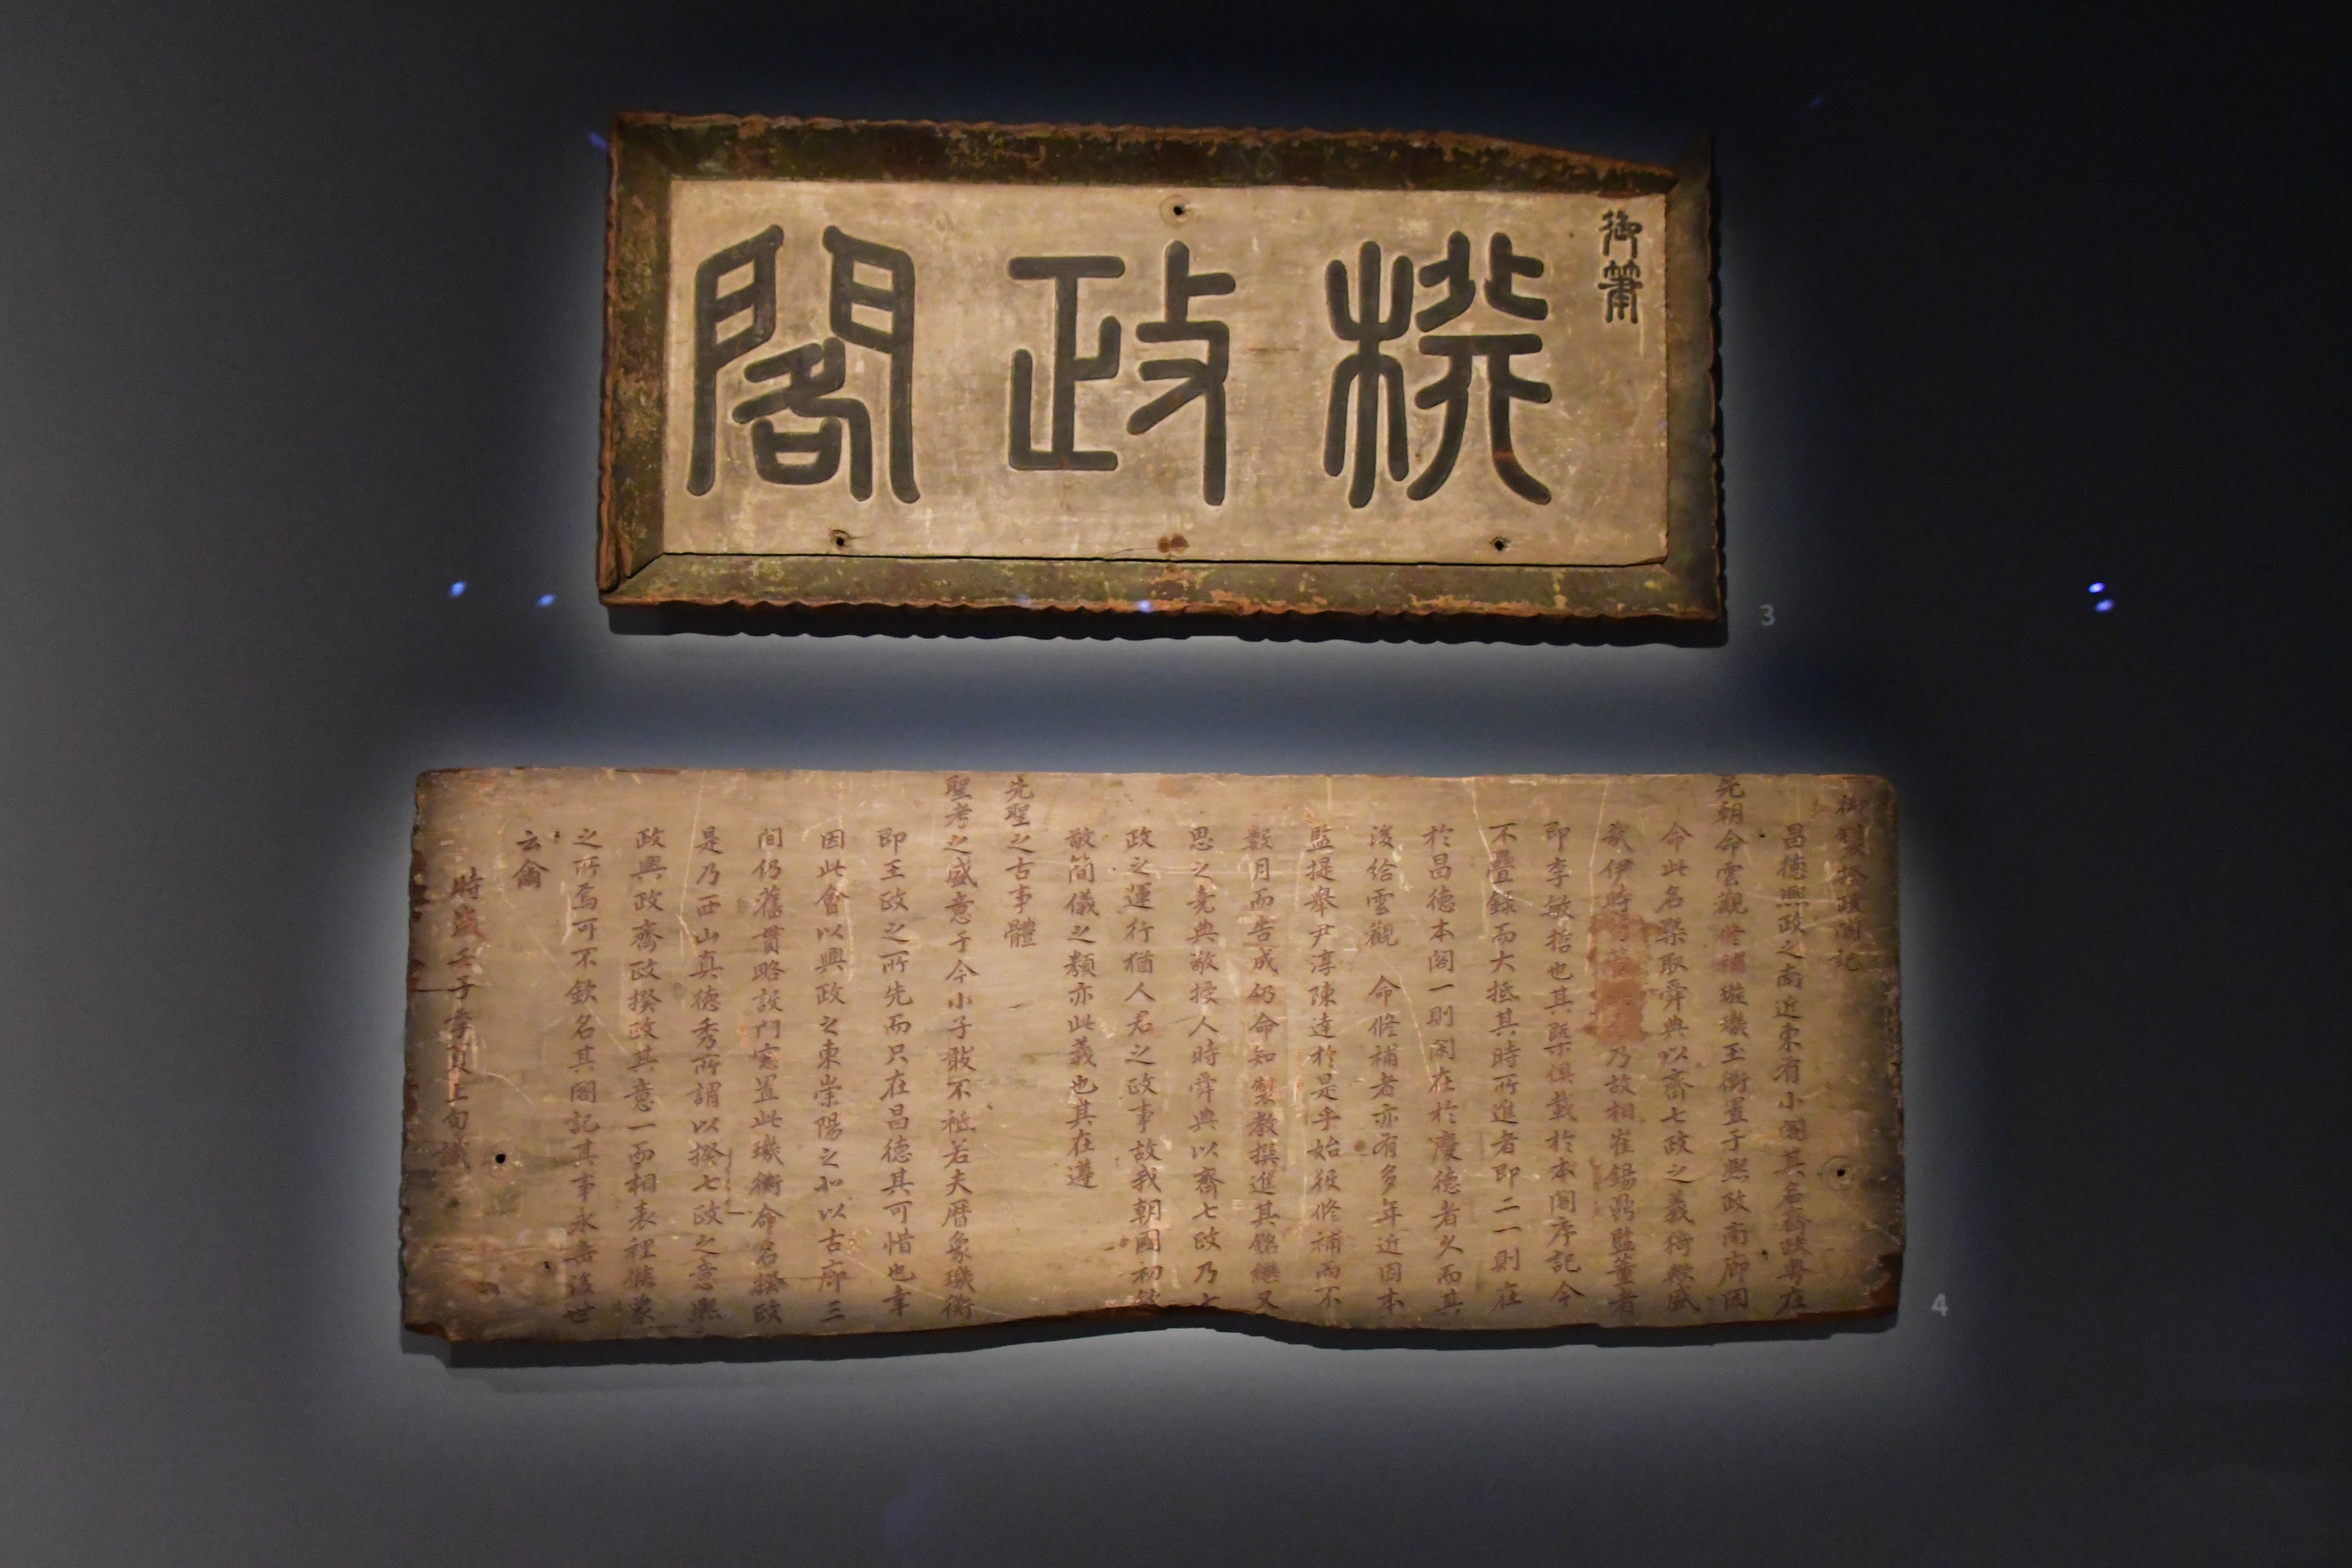 御筆
揆政閣
3
御製揆政閣記
昌德熙政之南近東有小閣其名齊政粤在
先朝命雲觀修補璇璣玉衡置于熙政南廊因
命此名槩取舜典以齊七政之義猗歟盛
哉伊時乃故相崔錫鼎監董者
即李敏哲也其槩俱載於本閣序記今
不疊錄而大抵其時所進者即二一則在
於昌德本閣一則閑在於慶德者久而其
後給雲觀 命修補者亦有多年近因本
監提舉尹淳陳達於是乎始役修補而不
數月而告成仍命知製教撰進其銘繼又
思之堯典敬授人時舜典以齊七政乃七
政之運行猶人君之政事故我朝國初欽
敬簡儀之類亦此義也其在遵
先聖之古事體
聖考之盛意于今小子敢不祗若夫曆象璣衡
即王政之所先而只在昌德其可惜也幸
因此會以興政之東崇陽之北以古廊三
間仍舊貫略設門窓置此璣衡命名揆政
是乃西山真德秀所謂以揆七政之意熙
政興政齊政揆政其意一而相表裡猗歟
之所焉可不欽名其閣記其事永垂後世
云爾
時歲壬子季夏上旬識
4